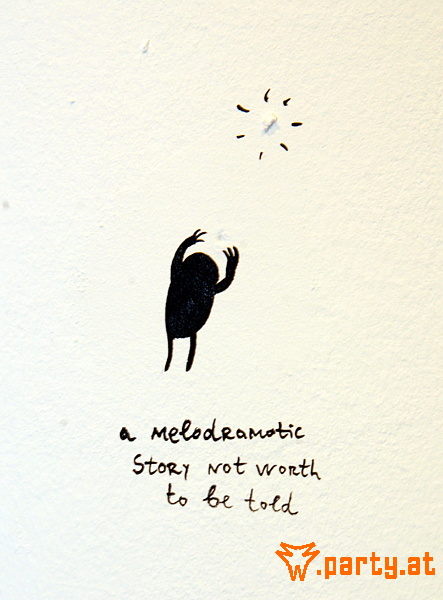 a melodramatic
Story not worth
to be told
w.party.at